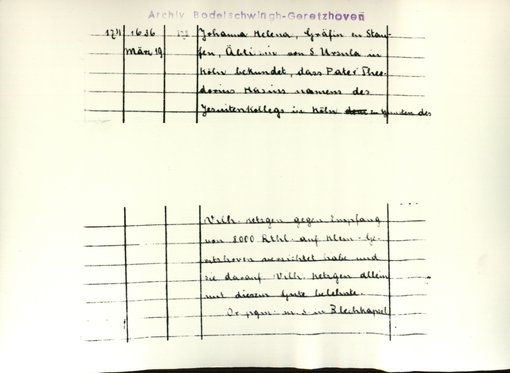 Archiv Bodelschwingh-Geretzhoven
1636 Johanna Helena, Gräfin zu Stau-
März 19 fen, Äbtissin von S. Ursula in
Köln bekundet, dass Pater Theo-
dorius Hasius namens des
Jesuitenkollegs in Köln zu Gunsten des
Wilh. Retzgen gegen Empfang
von 8000 Rthl. auf Klein-Ge-
retzhoven verzichtet habe und
sie darauf Wilh. Retzgen allein
mit diesem Gute belehnte.
Or. Pgm. m. S. in Blechkapsel